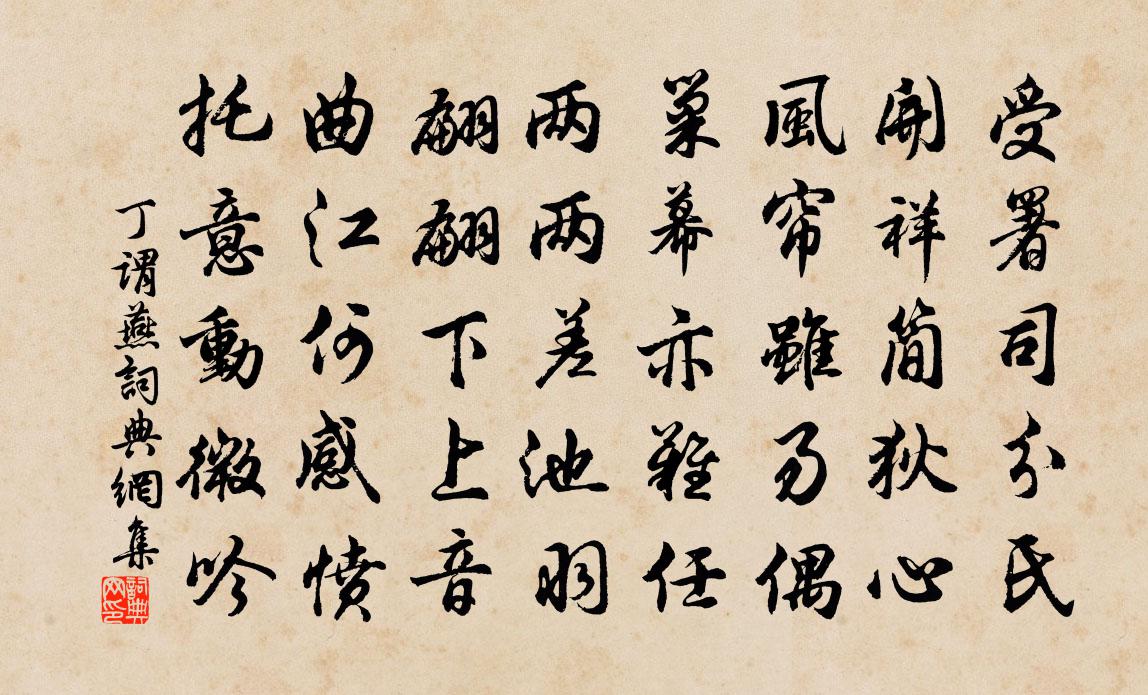 受署司分氏
開祥簡狄心
風帘雖易偶
巢幕亦難任
两两差池羽
翩翩下上音
曲江何感憤
托意動微吟
丁謂燕詞典網集
詞典